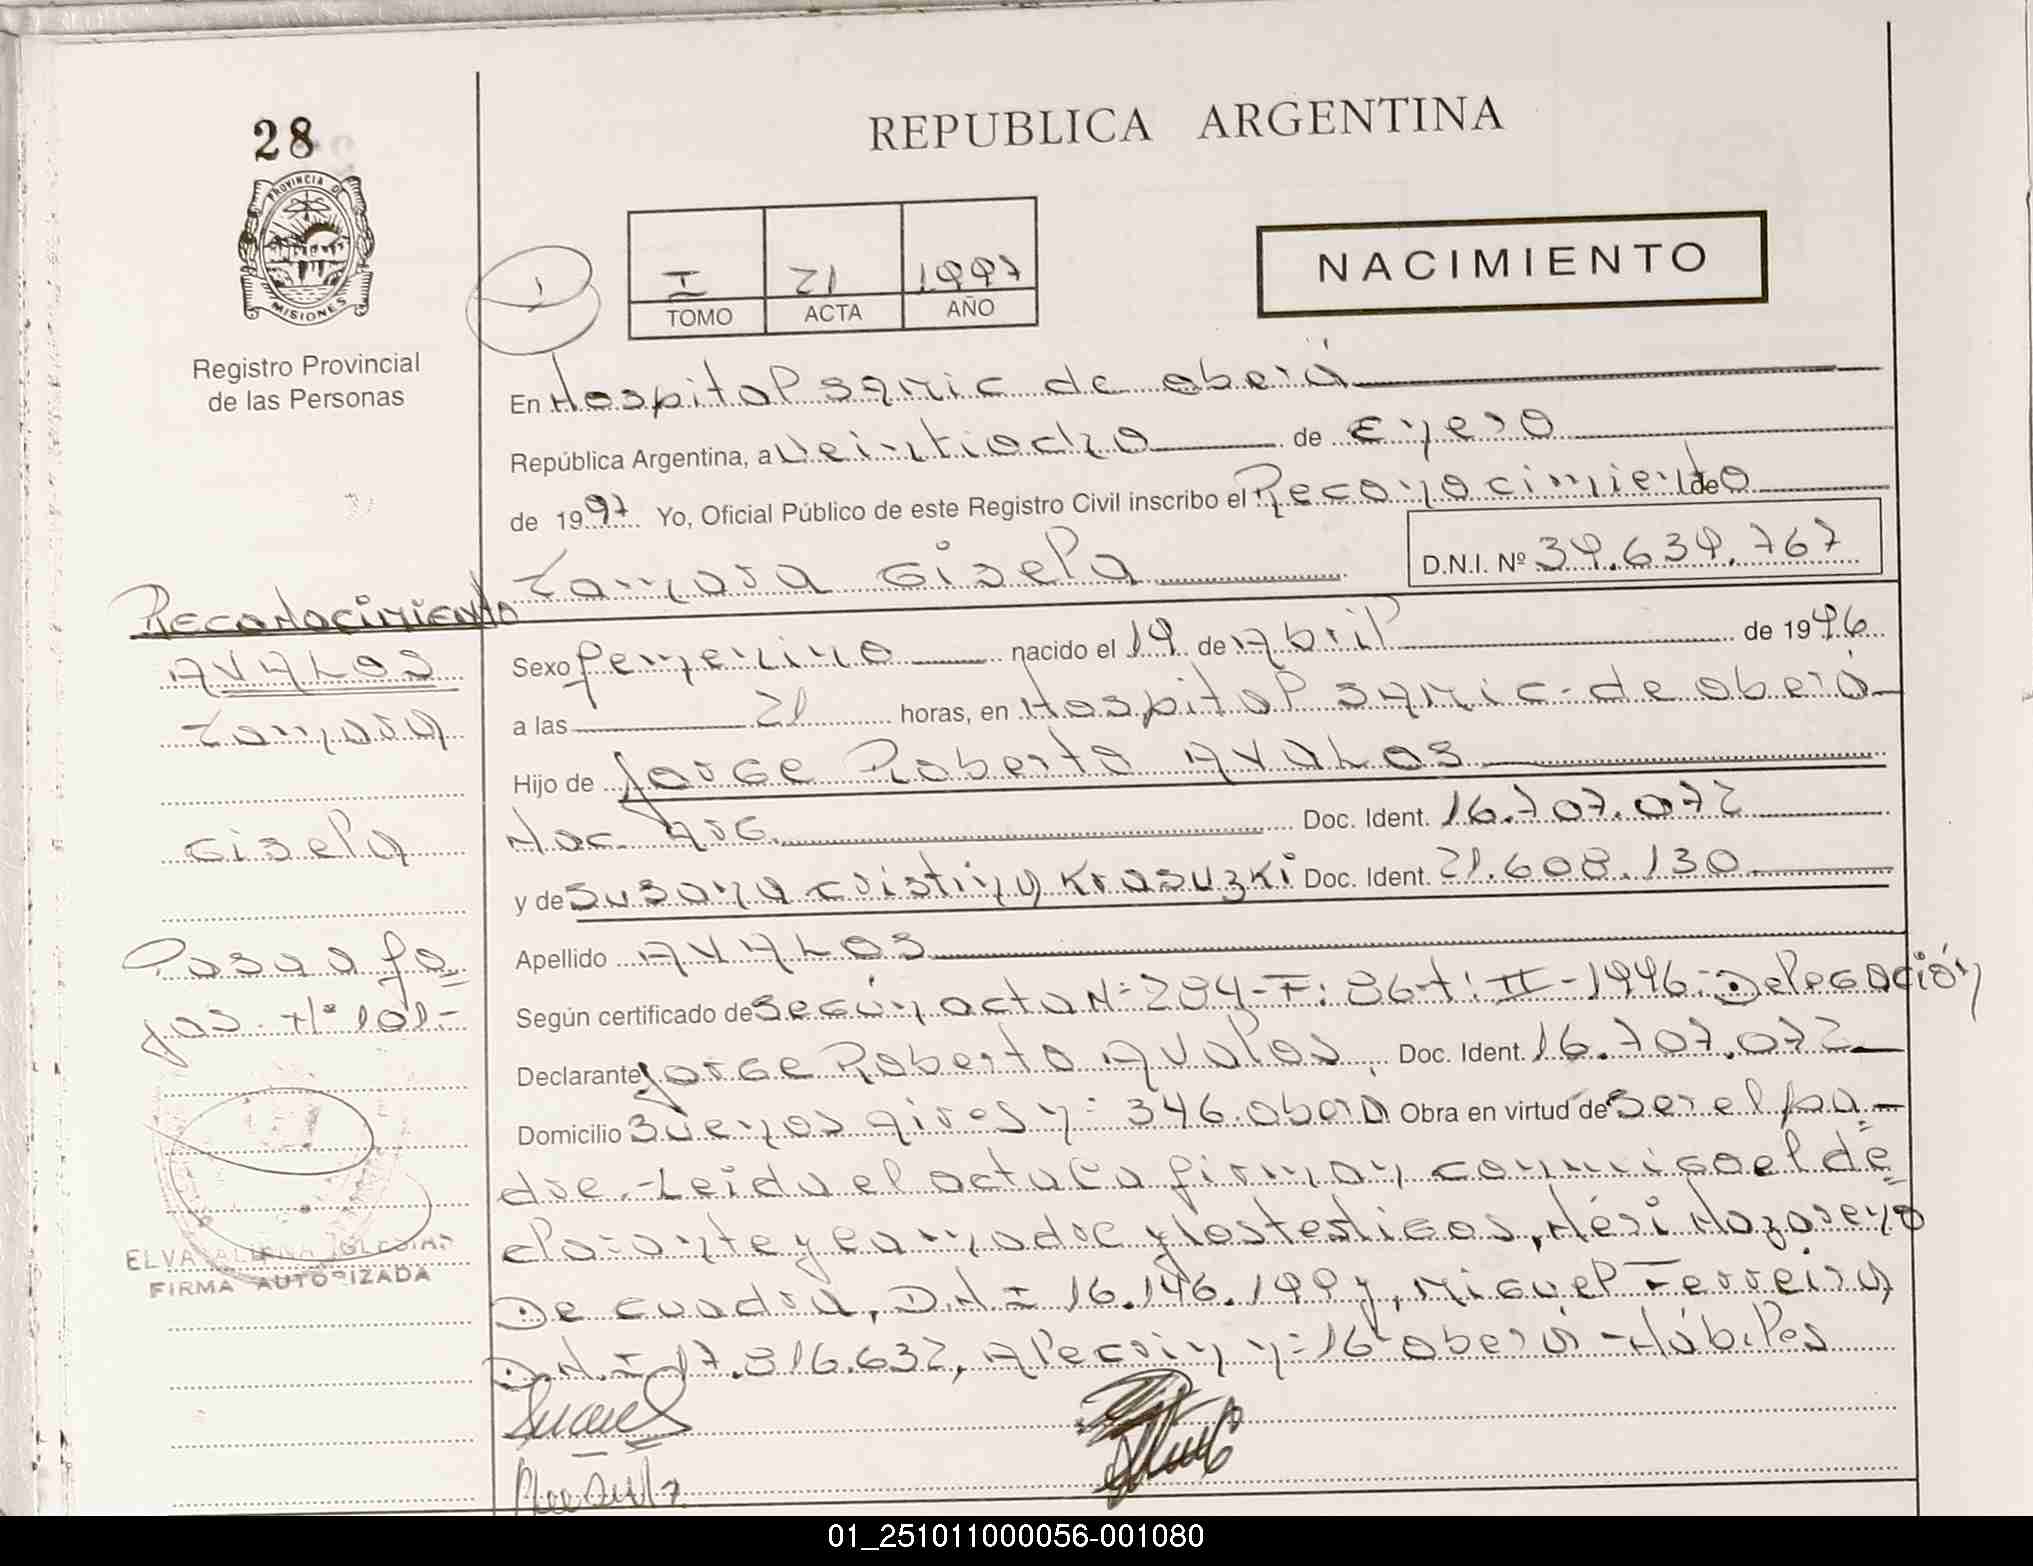 28
REPUBLICA ARGENTINA
PROVINCIA DE
MISIONES
Registro Provincial
de las Personas
I 21 1997
TOMO ACTA AÑO
NACIMIENTO
En Hospital Samic de oberá
República Argentina, a veintiocho de Enero
de 1997 Yo, Oficial Público de este Registro Civil inscribo el Reconocimiento de
Tamara Gisela
D.N.I. Nº 39.639.767
Reconocimiento
AVALOS
Tamara
Gisela
Pasa a fo=
jas. Nº 101-
Sexo femenino nacido el 19 de Abril de 1996
a las 21 horas, en Hospital Samic - de oberá
Hijo de Jorge Roberto AVALOS
Nac. Arg. Doc. Ident. 16.707.072
y de Susana Cristina Krasuzki Doc. Ident. 21.608.130
Apellido AVALOS
Según certificado de según acta Nº 284-F: 86-t: II-1996: Delegación
Declarante Jorge Roberto Avalos, Doc. Ident. 16.707.072
Domicilio Buenos Aires nº 346. oberá Obra en virtud de ser el pa-
dre.-Leida el acta la firman conmigo el de=
clarante y la madre y los testigos, Néri Nazareno
De cuadra, DNI 16.146.199 y, Miguel Ferreira
D.N.I 17.816.632, Alecrin nº 16 oberá - Hábiles
FIRMA AUTORIZADA
01_251011000056-001080